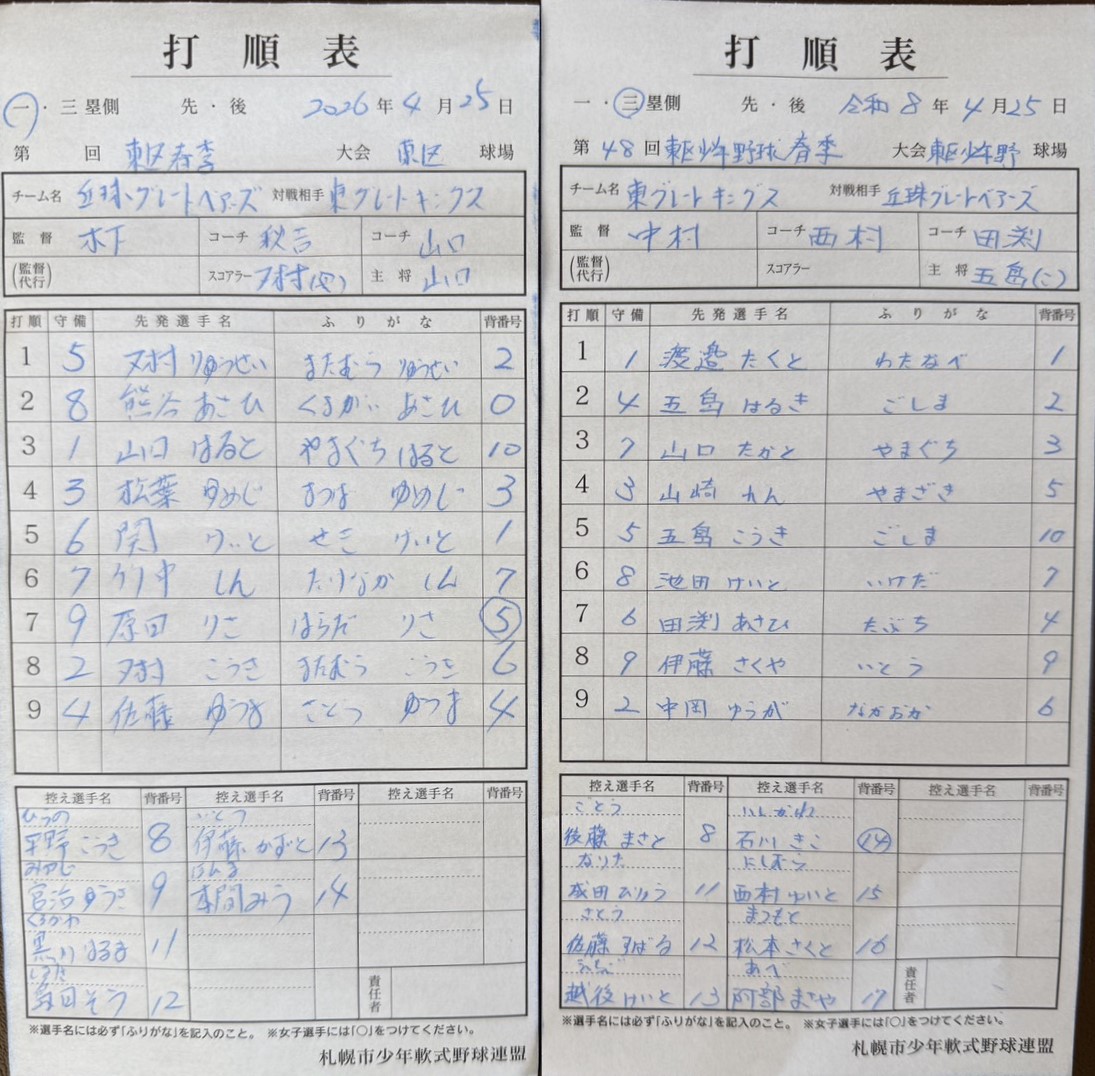 打順表
一・三塁側 先・後 2026年4月25日
第 回 東区春季 大会 東区 球場
チーム名 丘珠グレートベアーズ 対戦相手 東グレートキングス
監督 木下 コーチ 秋吉 コーチ 山口
(監督代行) スコアラー 主将 山口
打順 守備 先発選手名 ふりがな 背番号
1 5 りゅうせい またむら りゅうせい 2
2 8 熊谷 あさひ くまがい あさひ 0
3 1 山口 はると やまぐち はると 10
4 3 松葉 ゆめじ まつば ゆめじ 3
5 6 関 けいと せき けいと 1
6 7 竹中 しん たけなか しん 7
7 9 原田 りさ はらだ りさ 5
8 2 こうき またむら こうき 6
9 4 佐藤 ゆうま さとう ゆうま 4
控え選手名 背番号 控え選手名 背番号 控え選手名 背番号
ひらの いとう
平野 こうき 8 伊藤 かずと 13
みやじ ほんま
宮治 ゆうき 9 本間 みう 14
くろかわ
黒川 はるき 11
そう 12
責任者
※選手名には必ず「ふりがな」を記入のこと。 ※女子選手には「○」をつけてください。
札幌市少年軟式野球連盟
打順表
一・三塁側 先・後 令和8年4月25日
第48回 東区少年野球春季 大会 東区少年野 球場
チーム名 東グレートキングス 対戦相手 丘珠グレートベアーズ
監督 中村 コーチ 西村 コーチ 田渕
(監督代行) スコアラー 主将 五島(こ)
打順 守備 先発選手名 ふりがな 背番号
1 1 渡邉 たくと わたなべ 1
2 4 五島 はるき ごしま 2
3 7 山口 たかと やまぐち 3
4 3 山崎 れん やまざき 5
5 5 五島 こうき ごしま 10
6 8 池田 けいと いけだ 7
7 6 田渕 あさひ たぶち 4
8 9 伊藤 さくや いとう 9
9 2 中岡 ゆうが なかおか 6
控え選手名 背番号 控え選手名 背番号 控え選手名 背番号
ごとう いしかわ
後藤 まさと 8 石川 きこ 14
なりた にしむら
成田 ひりゅう 11 西村 ゆいと 15
さとう まつもと
佐藤 すばる 12 松本 さくと 16
えちご あべ
越後 けいと 13 阿部 まさや 17
責任者
※選手名には必ず「ふりがな」を記入のこと。 ※女子選手には「○」をつけてください。
札幌市少年軟式野球連盟